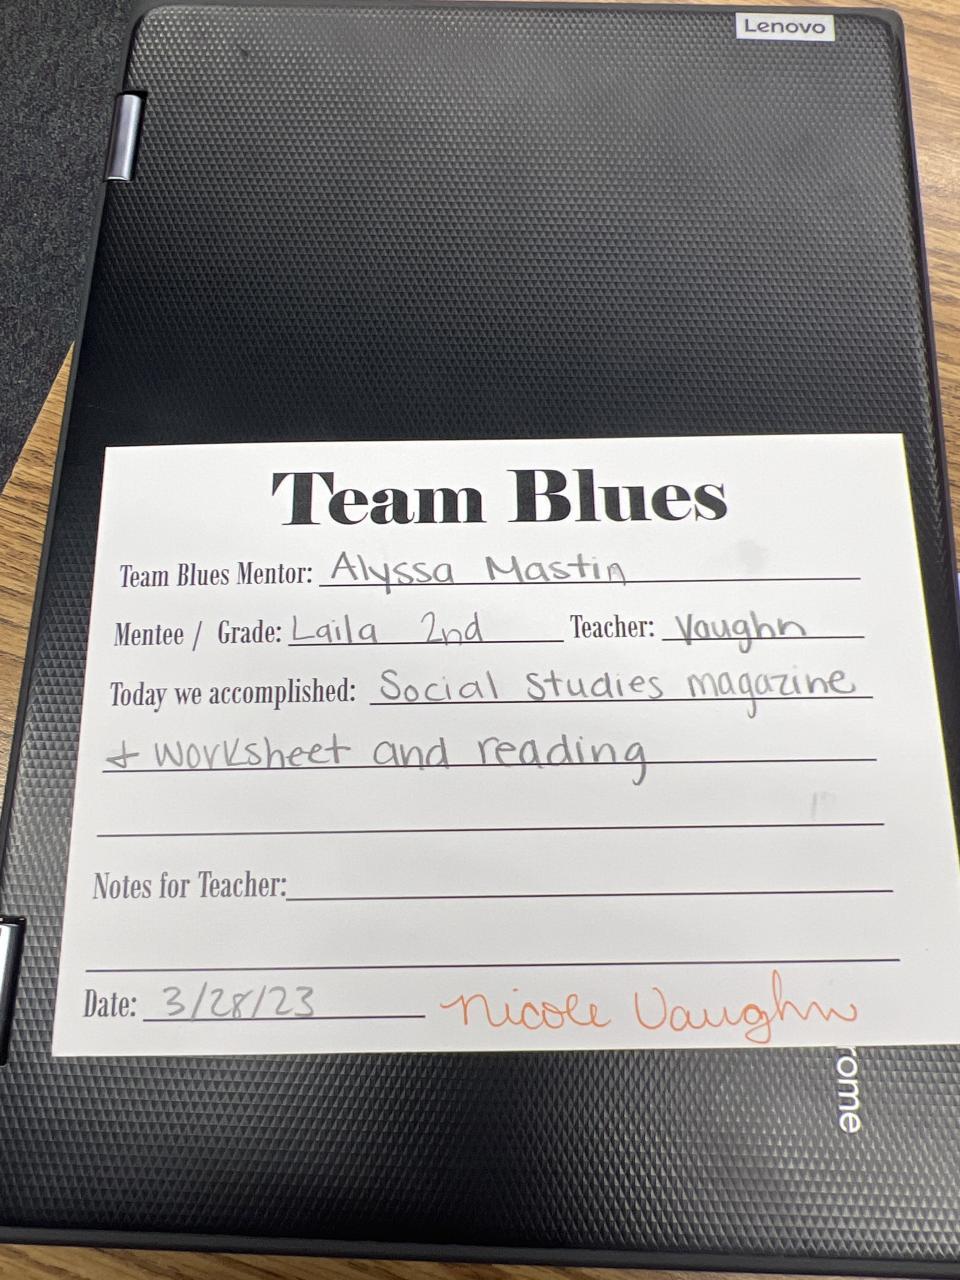 Lenovo
Team Blues
Team Blues Mentor: Alyssa Mastin
Mentee / Grade: Laila 2nd Teacher: Vaughn
Today we accomplished: Social studies magazine
+ worksheet and reading
Notes for Teacher:
Date: 3/28/23 Nicole Vaughn
rome